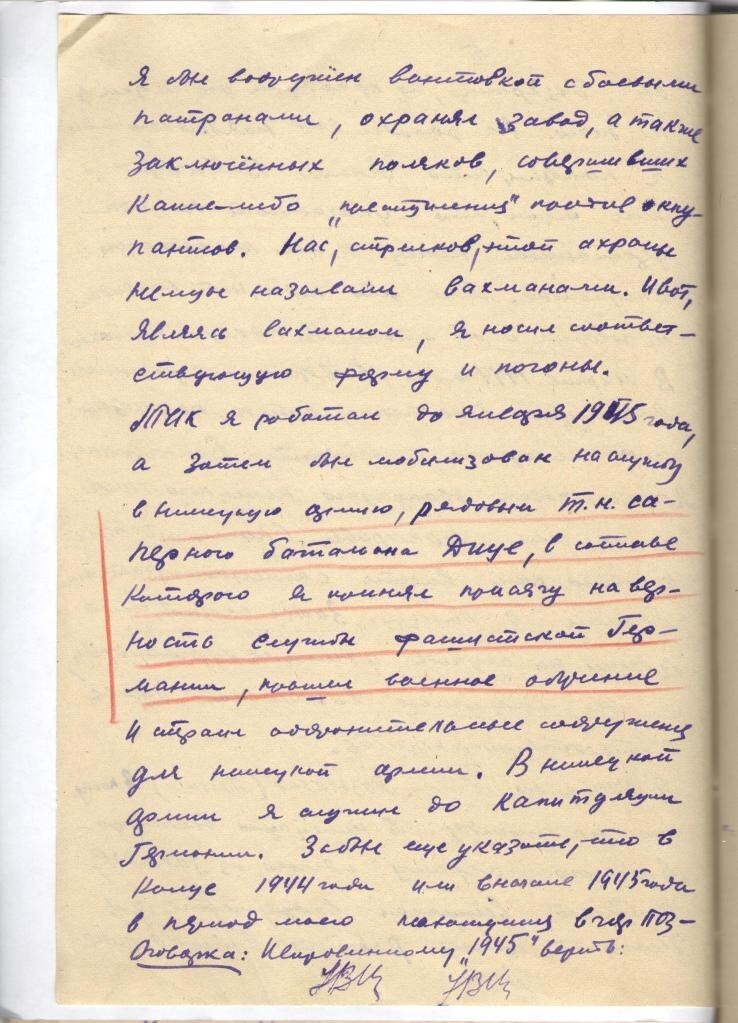 Я был вооружён винтовкой с боевыми
патронами, охранял завод, а также
заключённых поляков, совершивших
какие-либо "преступления" против окку-
пантов. Нас, стрелков, этой охраны
немцы называли вахманами. И вот,
являясь вахманом, я носил соответ-
ствующую форму и погоны.
Так я работал до января 1945 года,
а затем был мобилизован на службу
в немецкую армию, рядовым т.н. са-
перного батальона в составе
которого я принял присягу на вер-
ность службы фашистской Гер-
мании, прошел военное обучение
и строил оборонительные сооружения
для немецкой армии. В немецкой
армии я служил до капитуляции
Германии. Забыл еще указать, что в
конце 1944 года или вначале 1945 года
в период моего нахождения в гор. Поз-
Оговорка: Исправленному "1945" верить: